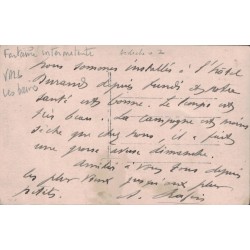 Fontaine intermittente
Ardèche n 70
VALS
les bains
Nous sommes installés à l'hôtel
Durand depuis lundi et notre
santé est bonne. Le temps est
très beau. La campagne est moins
sèche que chez nous, il a fait
une grosse averse dimanche.
Amitiés à vous tous depuis
les plus vieux jusqu'aux plus
petits.